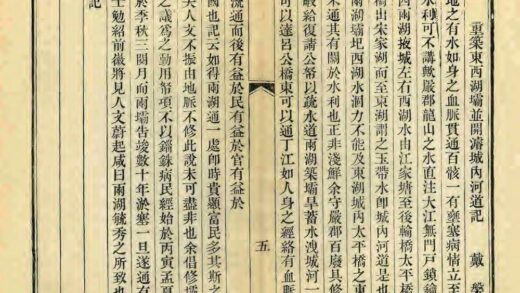 重築東西湖壩並開濬城內河道記 戴槃
地之有水如身之血脈貫通百骸一有壅塞病情立至
水利可不講歟嚴郡龍山之水直注大江無門戶鎖鑰
西兩湖掖城左右西湖水由江家塘至後輸橋太平橋
橋出朱家湖而至東湖謂之玉帶水即城內河道是也
兩湖壩圮西湖水洞力不能及東湖城內太平橋之東
未通其有關於水利也正非淺鮮余守嚴郡百廢具修
給復請公帑以疏水道兩湖築壩旱蓄水洩城河一
可以達呂公橋東可以通丁江如人身之經絡有血脈
五
流通而後有益於民有益於官有益於
國也記云如得兩湖通一處卽時貴顯富民多其斯之
夫人文不振由地脈不修此說未可盡非也余倡修壩
之議為之動用帑項不以錙銖病民經始於丙寅孟夏
於季秋三閱月而兩壩告竣數十年淤塞一旦遂通有
士勉紹前徽將見人文蔚起咸曰兩湖毓秀之所致也
記